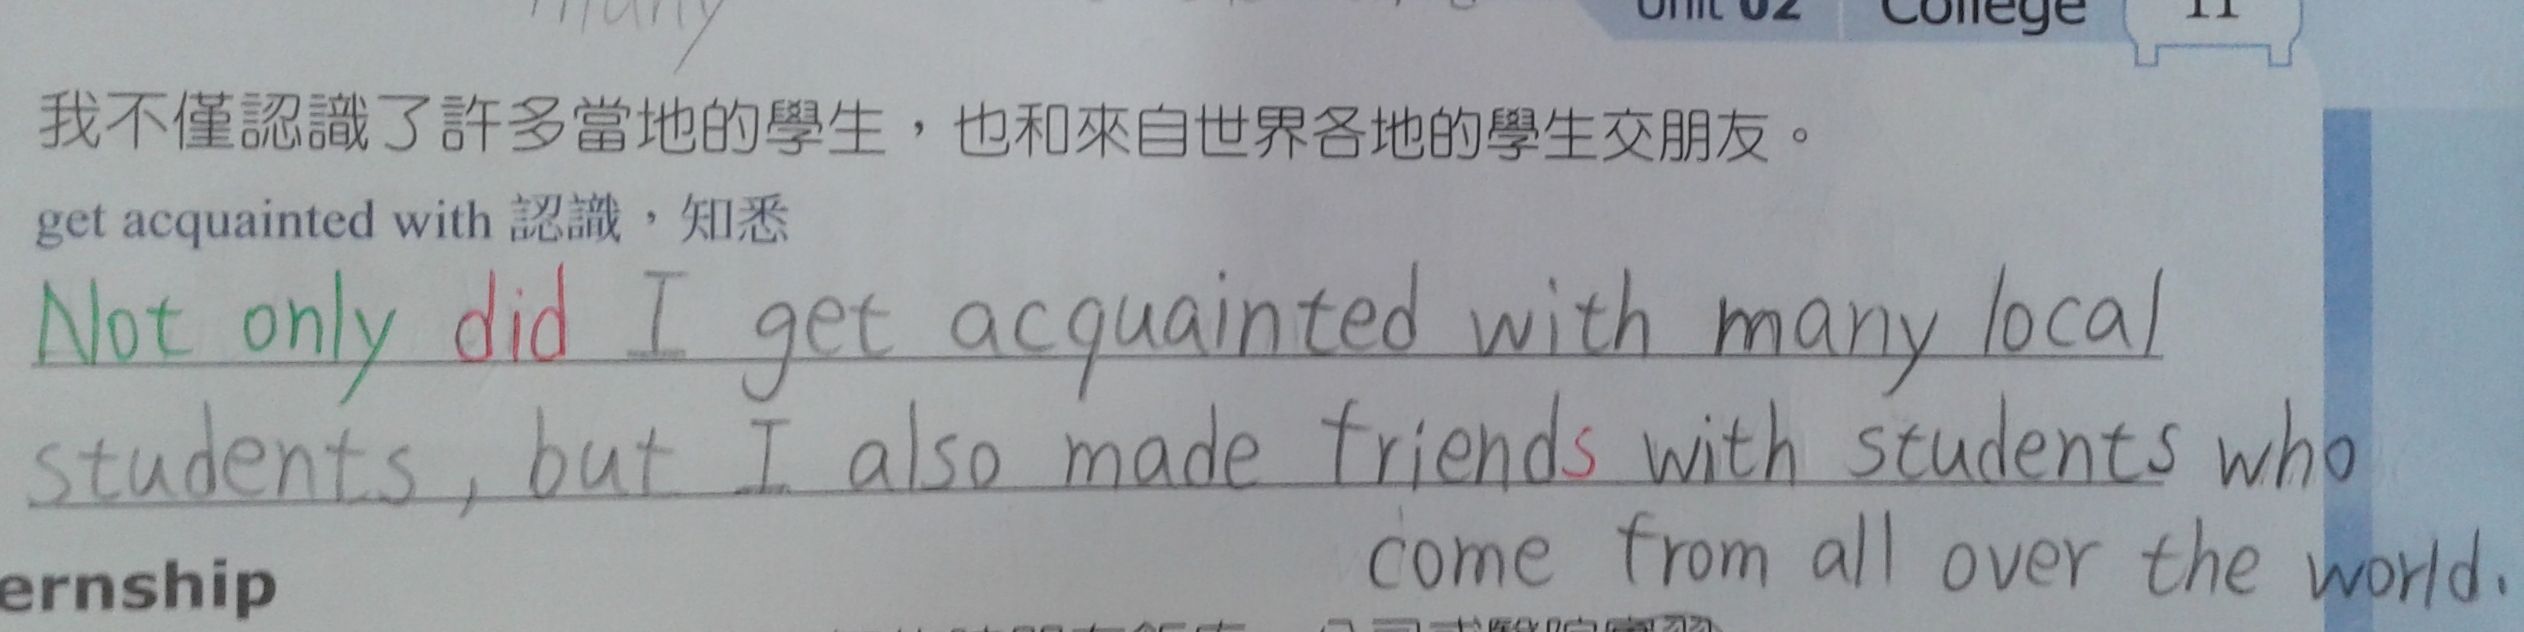 many
Unit 02 College 11
我不僅認識了許多當地的學生，也和來自世界各地的學生交朋友。
get acquainted with 認識，知悉
Not only did I get acquainted with many local
students, but I also made friends with students who
come from all over the world.
ernship